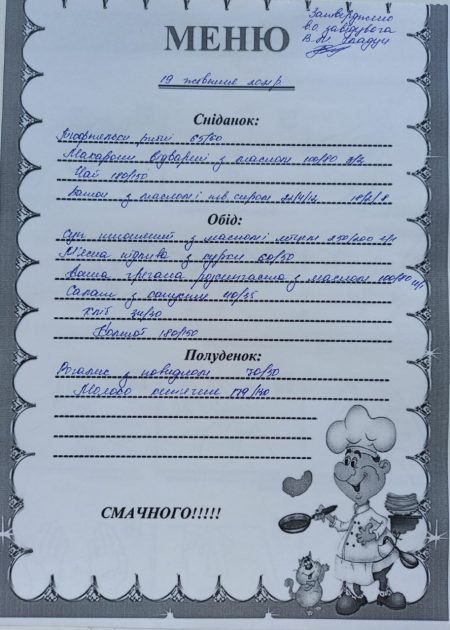 Затверджено
во завідувача
МЕНЮ
19 жовтня 2021р.
Сніданок:
рибні 65/50
Макарони відварені з маслом 100/80
Чай 180/150
Батон з маслом і тв сиром 24/4/12 18/2/8
Обід:
Суп пшоняний з маслом і яйцем 250/200
М'ясна підлива з буряком 60/50
Каша гречана розсипчаста з маслом 100/80
Салат з капусти 40/35
Хліб 30/30
Компот 180/150
Полуденок:
Рогалик з повидлом 70/50
Молоко кипячене 179/150
СМАЧНОГО!!!!!